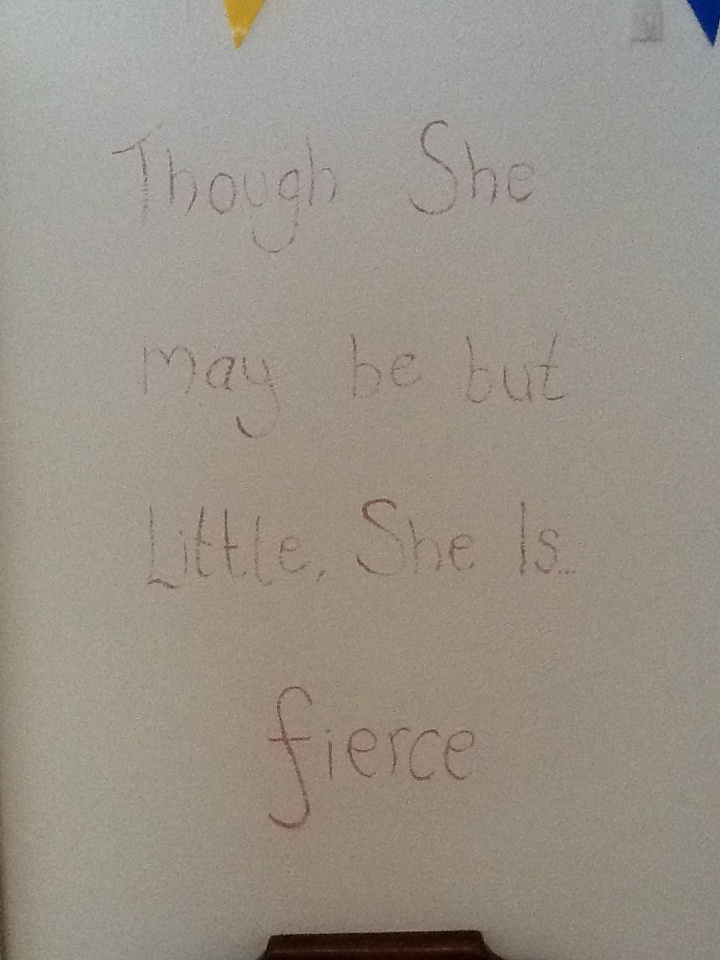 Though She
may be but
Little, She Is...
fierce